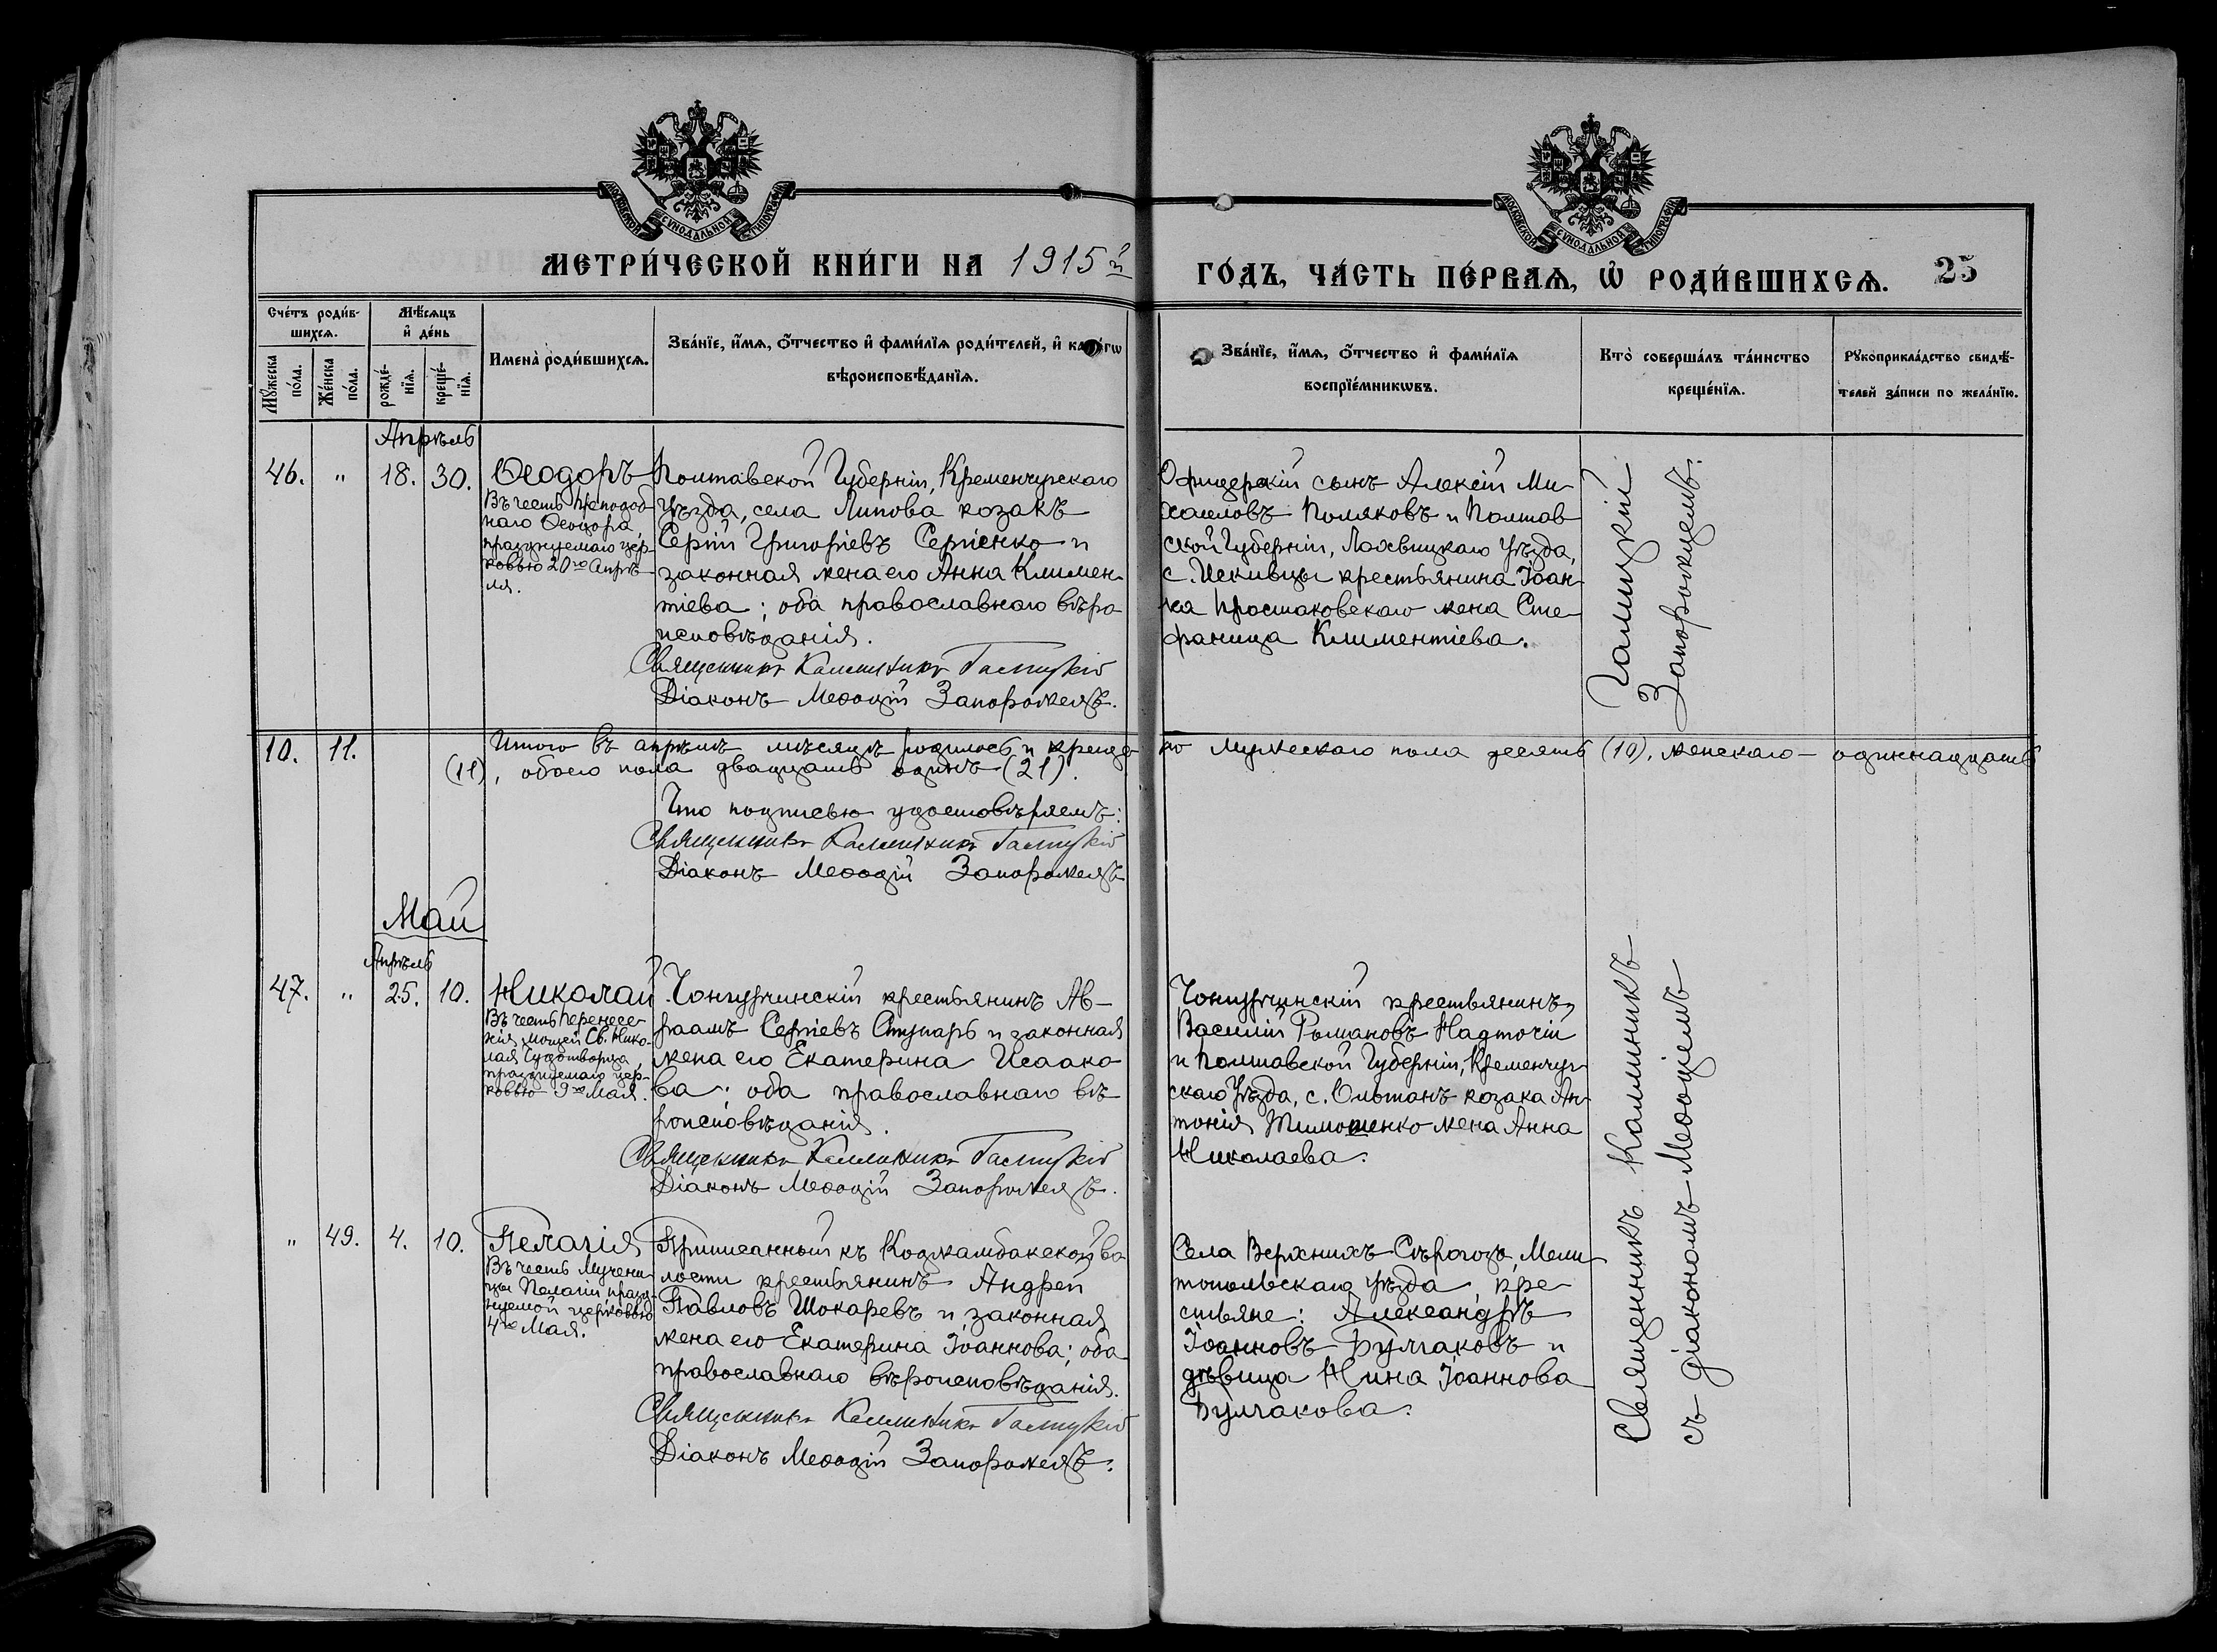 МОСКОВСКОЙ СѴНОДАЛЬНОЙ ТИПОГРАФІИ
МОСКОВСКОЙ СѴНОДАЛЬНОЙ ТИПОГРАФІИ
МЕТРИ́ЧЕСКОЙ КНИ́ГИ НА 1915й
ГО́ДЪ, ЧА́СТЬ ПЕ́РВАѦ, Ѡ҆ РОДИ́ВШИХСѦ. 25
Сче́тъ роди́в-
шихсѧ.
Мꙋ́жеска
по́ла.
Же́нска
по́ла.
Мѣ́сѧцъ
и҆ де́нь
рожде́-
нїѧ.
креще́-
нїѧ.
Имена̀ роди́вшихсѧ.
Зва́нїе, и҆́мѧ, ѻ҆́тчество и҆ фами́лїѧ роди́телей, и҆
вѣроисповѣ́данїѧ.
Зва́нїе, и҆́мѧ, ѻ҆́тчество и҆ фами́лїѧ
воспрїе́мникѡвъ.
Кто̀ соверша́лъ та́инство
креще́нїѧ.
Рꙋкоприкла́дство свидѣ́-
телей за́писи по жела́нїю.
Апрѣль
46. " 18. 30. Ѳеодоръ
Въ честь преподоб
наго Ѳеодора,
празднуемаго цер-
ковью 20го Апрѣ-
ля.
Полтавской Губерніи, Кременчугскаго
уѣзда, села Липова козакъ
Сергій Григоріевъ Сергіенко и
законная жена его Анна Климен-
тіева; оба православнаго вѣро
исповѣданія.
Священникъ Каллиникъ Галицкій
Діаконъ Меѳодій Запорожецъ.
Офицерскій сынъ Алексій Ми-
хаиловъ Поляковъ и Полтав
ской Губерніи, Лохвицкаго уѣзда,
с. Исковцы крестьянина Іоан-
на Простаковскаго жена Сте-
фанида Климентіева.
Галицкій
Запорожцемъ.
10. 11. Итого въ апрѣлѣ мѣсяцѣ родилось и креще-
но мужескаго пола десять (10), женскаго – одиннадцать
(11), обоего пола двадцать одинъ (21).
Что подписью удостовѣряемъ:
Священникъ Каллиникъ Галицкій
Діаконъ Меѳодій Запорожецъ
Май
Апрѣль
47. " 25. 10. Николай
Въ честь перенесе-
нія мощей Св. Нико-
лая Чудотворца,
празднуемаго цер-
ковью 9го Мая.
Чонгурчинскій крестьянинъ Ав-
раамъ Сергіевъ Ступарь и законная
жена его Екатерина Исаако-
ва; оба православнаго вѣ-
роисповѣданія.
Священникъ Каллиникъ Галицкій
Діаконъ Меѳодій Запорожецъ.
Чонгурчинскій крестьянинъ
Василій Романовъ Надточій
и Полтавской Губерніи, Кременчуг-
скаго уѣзда, с. козака Ан-
тонія Тимошенко жена Анна
Николаева.
" 49. 4. 10. Пелагія
Въ честь Мучени-
цы Пелагіи празд-
нуемой церковью
4го Мая.
Приписанный къ Коджамбакской во
лости крестьянинъ Андрей
Павловъ Шокаревъ и законная
жена его Екатерина Іоаннова; оба
православнаго вѣроисповѣданія.
Священникъ Каллиникъ Галицкій
Діаконъ Меѳодій Запорожецъ.
Села Верхнихъ Сѣрогозъ, Мели
топольскаго уѣзда, кре-
стьяне: Александръ
Іоанновъ Булгаковъ и
дѣвица Нина Іоаннова
Булгакова.
Священникъ Каллиникъ
съ діакономъ Меѳодіемъ